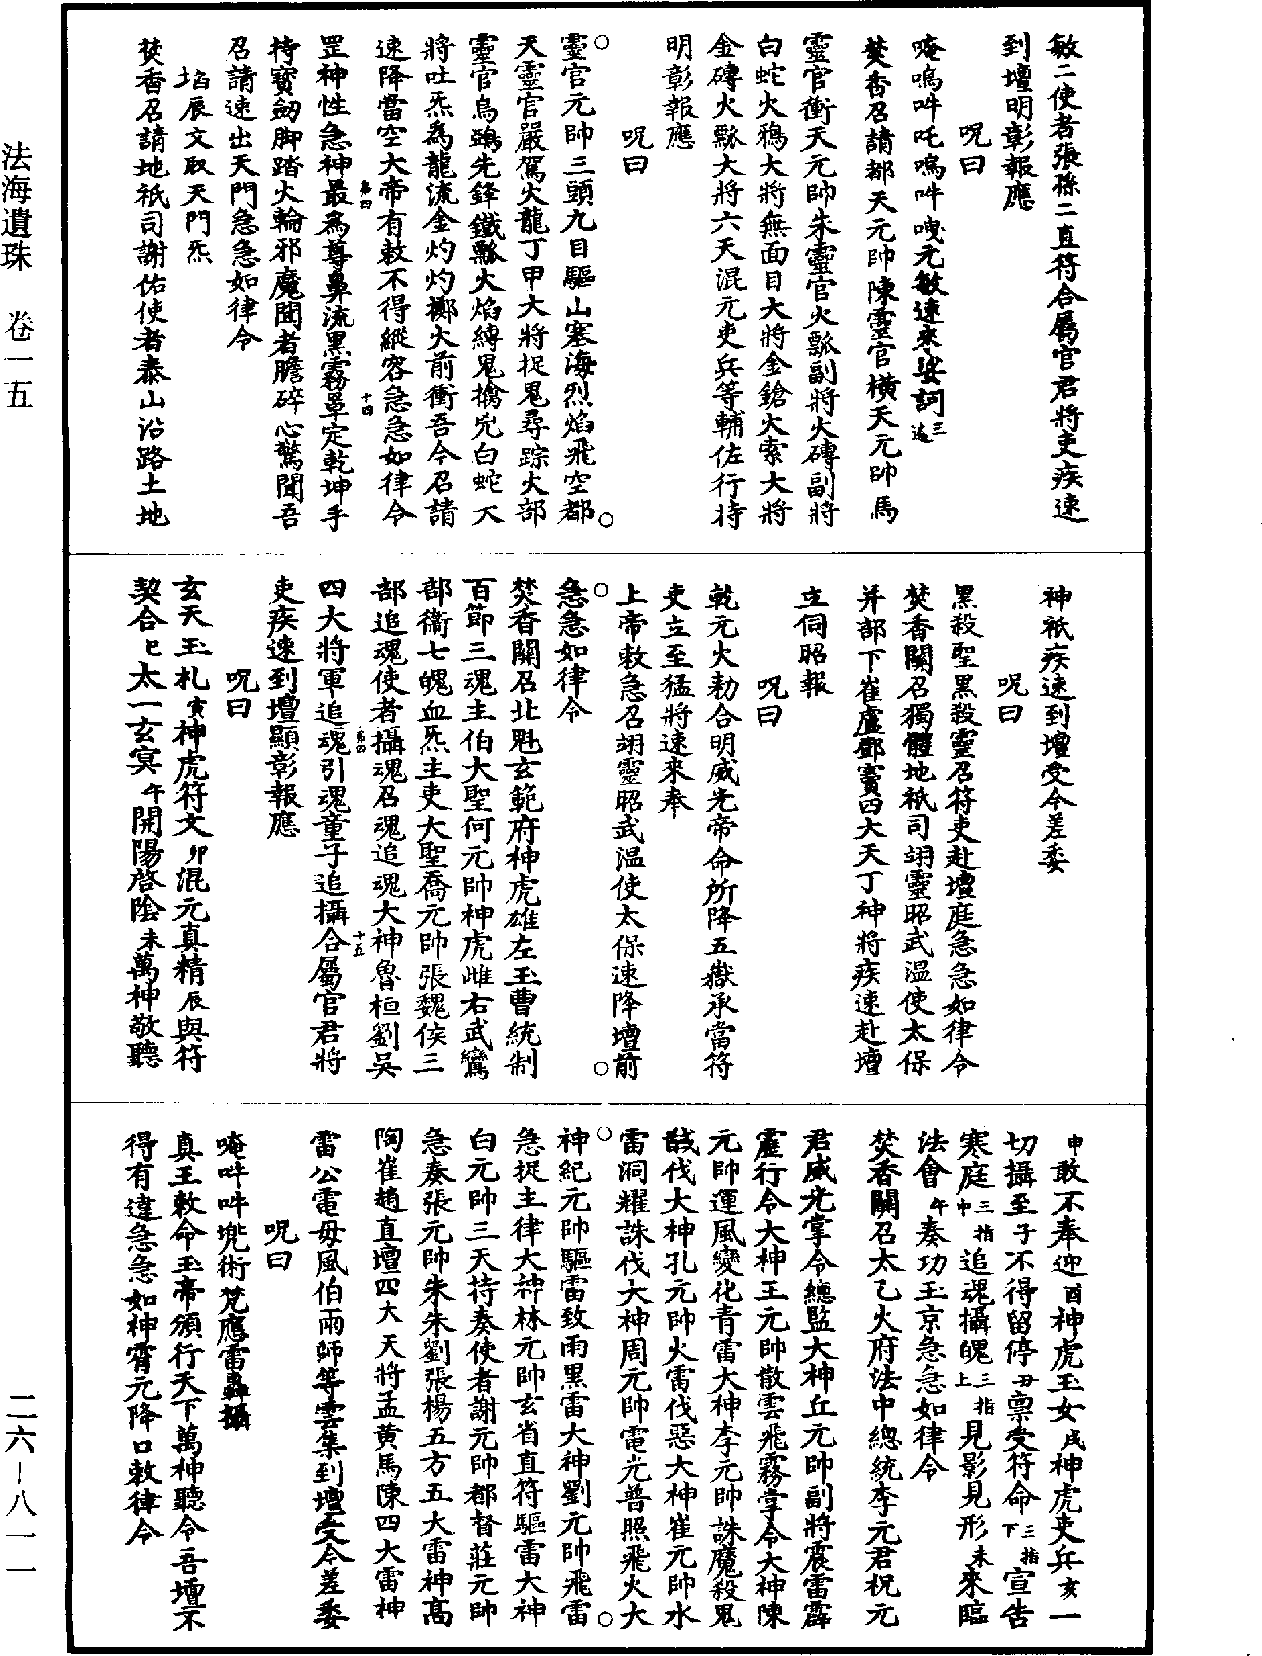 敏二使者張孫二直符合屬官君將吏疾速
到壇明彰報應
呪曰
唵嗚吽吒嗚吽㖿元敏速來娑訶三遍
焚香召請都天元帥陳靈官橫天元帥馬
靈官衝天元帥朱靈官火瓢副將火磚副將
白蛇火鴉大將無面目大將金鎗火索大將
金磚火瓢大將六天混元吏兵等輔佐行持
明彰報應
呪曰
靈官元帥三頭九目驅山塞海烈焰飛空都
天靈官嚴駕火龍丁甲大將捉鬼尋踪火部
靈官烏鴉先鋒鐵瓢火焰縛鬼擒兇白蛇大
將吐炁為龍流金灼灼擲火前衝吾今召請
速降當空大帝有敕不得縱容急急如律令
罡神性急神最為尊鼻流黑霧罩定乾坤手
持寶劒脚踏火輪邪魔聞者膽碎心驚聞吾
召請速出天門急急如律令
掐辰文取天門炁
焚香召請地祇司謝佑使者泰山沿路土地
神祇疾速到壇受令差委
呪曰
黑殺聖黑殺靈召符吏赴壇庭急急如律令
焚香關召獨體地祇司翊靈昭武溫使太保
并部下崔盧鄧竇四大天丁神將疾速赴壇
立伺昭報
呪曰
乾元火勅合明威光帝命所降五嶽承當符
吏立至猛將速來奉
上帝敕急召翊靈昭武溫使太保速降壇前
急急如律令
焚香關召北魁玄範府神虎雄左玉曹統制
百節三魂主伯大聖何元帥神虎雌右武鸞
部衛七魄血炁主吏大聖喬元帥張魏侯三
部追魂使者攝魂召魂追魂大神魯桓劉吳
四大將軍追魂引魂童子追攝合屬官君將
吏疾速到壇顯彰報應
呪曰
玄天玉札寅神虎符文卯混元真精辰與符
契合巳太一玄冥午開陽啓陰未萬神敬聽
申敢不奉迎酉神虎玉女戌神虎吏兵亥一
切攝至子不得留停丑禀受符命三指下宣告
寒庭三指中追魂攝魄三指上見影見形未來臨
法會午奏功玉京急急如律令
焚香關召太乙火府法中總統李元君祝元
君威光掌令總監大神丘元帥副將震雷霹
靂行令大神王元帥散雲飛霧掌令大神陳
元帥運風變化青雷大神李元帥誅魔殺鬼
馘伐大神孔元帥火雷伐惡大神崔元帥水
雷洞耀誅伐大神周元帥電光普照飛火大
神紀元帥驅雷致雨黑雷大神劉元帥飛雷
急捉主律大神林元帥玄省直符驅雷大神
白元帥三天持奏使者謝元帥都督莊元帥
急奏張元帥朱朱劉張楊五方五大雷神高
陶崔趙直壇四大天將孟黃馬陳四大雷神
雷公電母風伯雨師等雲集到壇受令差委
呪曰
唵吽吽㘄術梵應雷轟攝
真王敕命玉帝頒行天下萬神聽令吾壇不
得有違急急如神霄元降口敕律令
第四
十四
第四
十五
法海遺珠　卷一五
二六—八一一